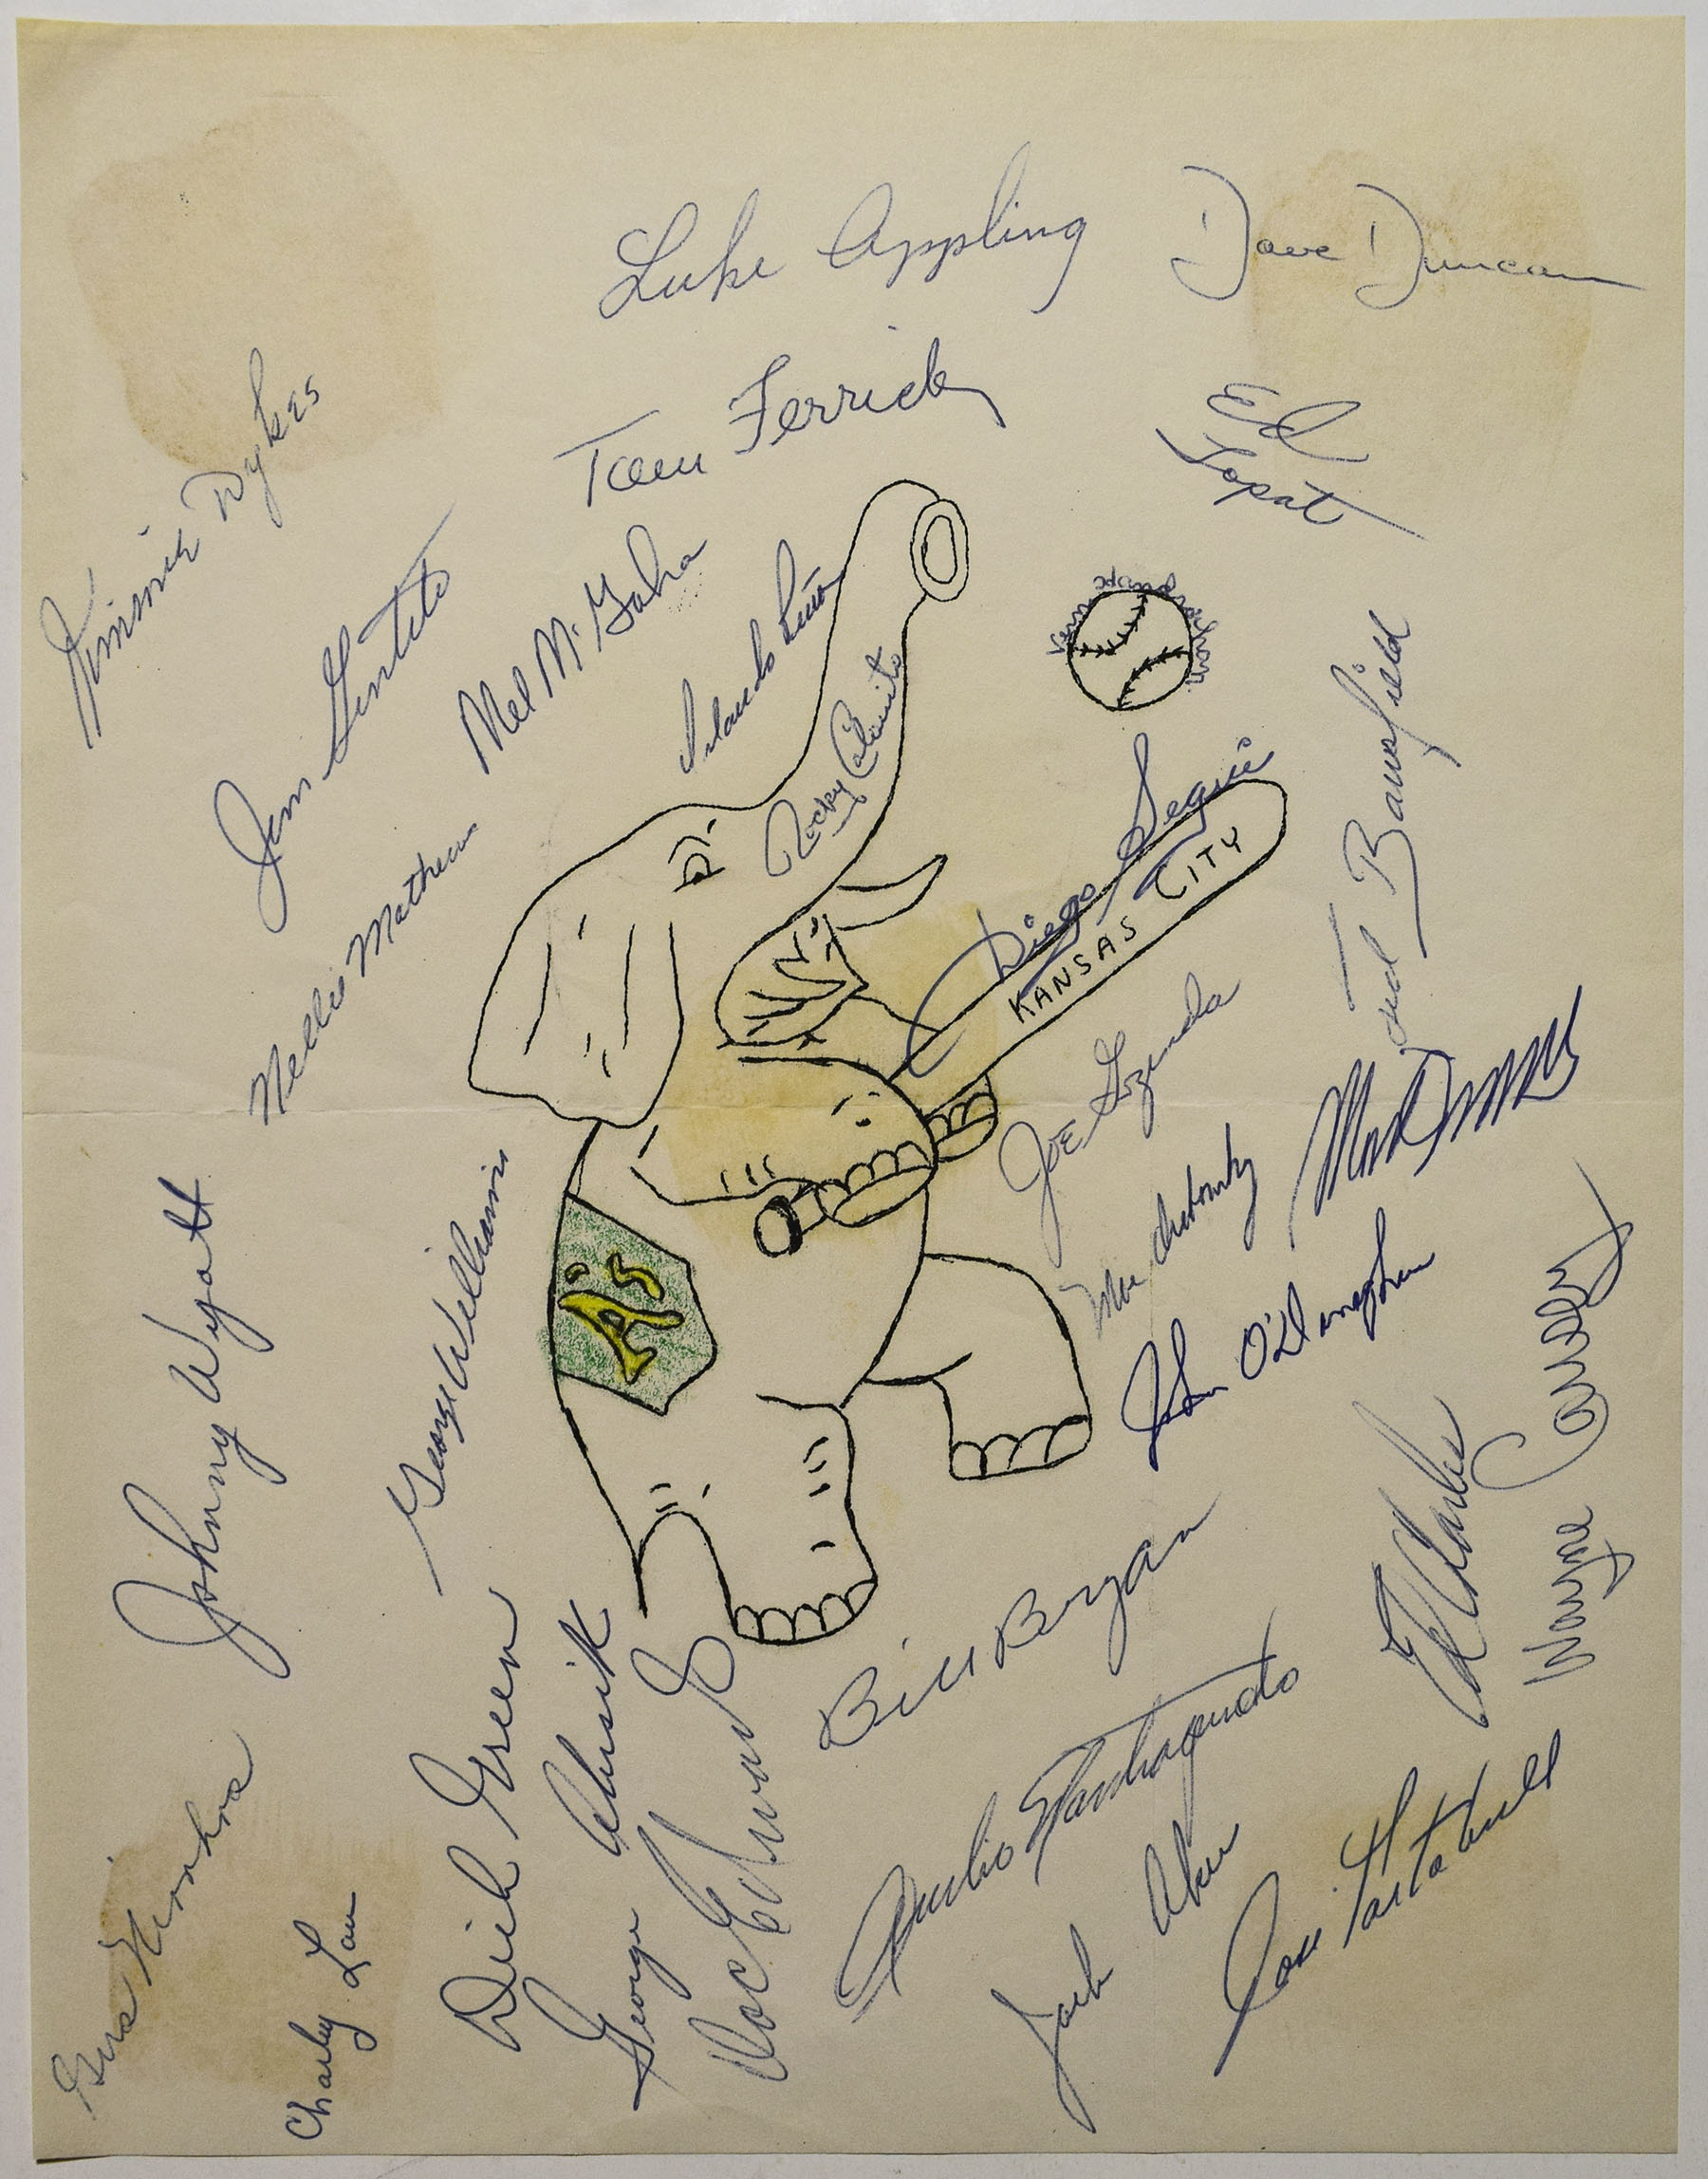 Luke Appling
Dave Duncan
Tom Ferrick
Ed
Lopat
Jimmie Dykes
Jim Gentile
Mel McGaha
Orlando Peña
Rocky Colavito
Nellie Mathews
Diego Segui
KANSAS CITY
Ted Bowsfield
Joe Grzenda
Moe Drabowsky
John O'Donoghue
A's
Johnny Wyatt
George Williams
Wayne Causey
Bill Bryan
Dick Green
George Alusik
Doc Edwards
Jose Santiago
Jack Aker
Jose Tartabull
Charley Lau